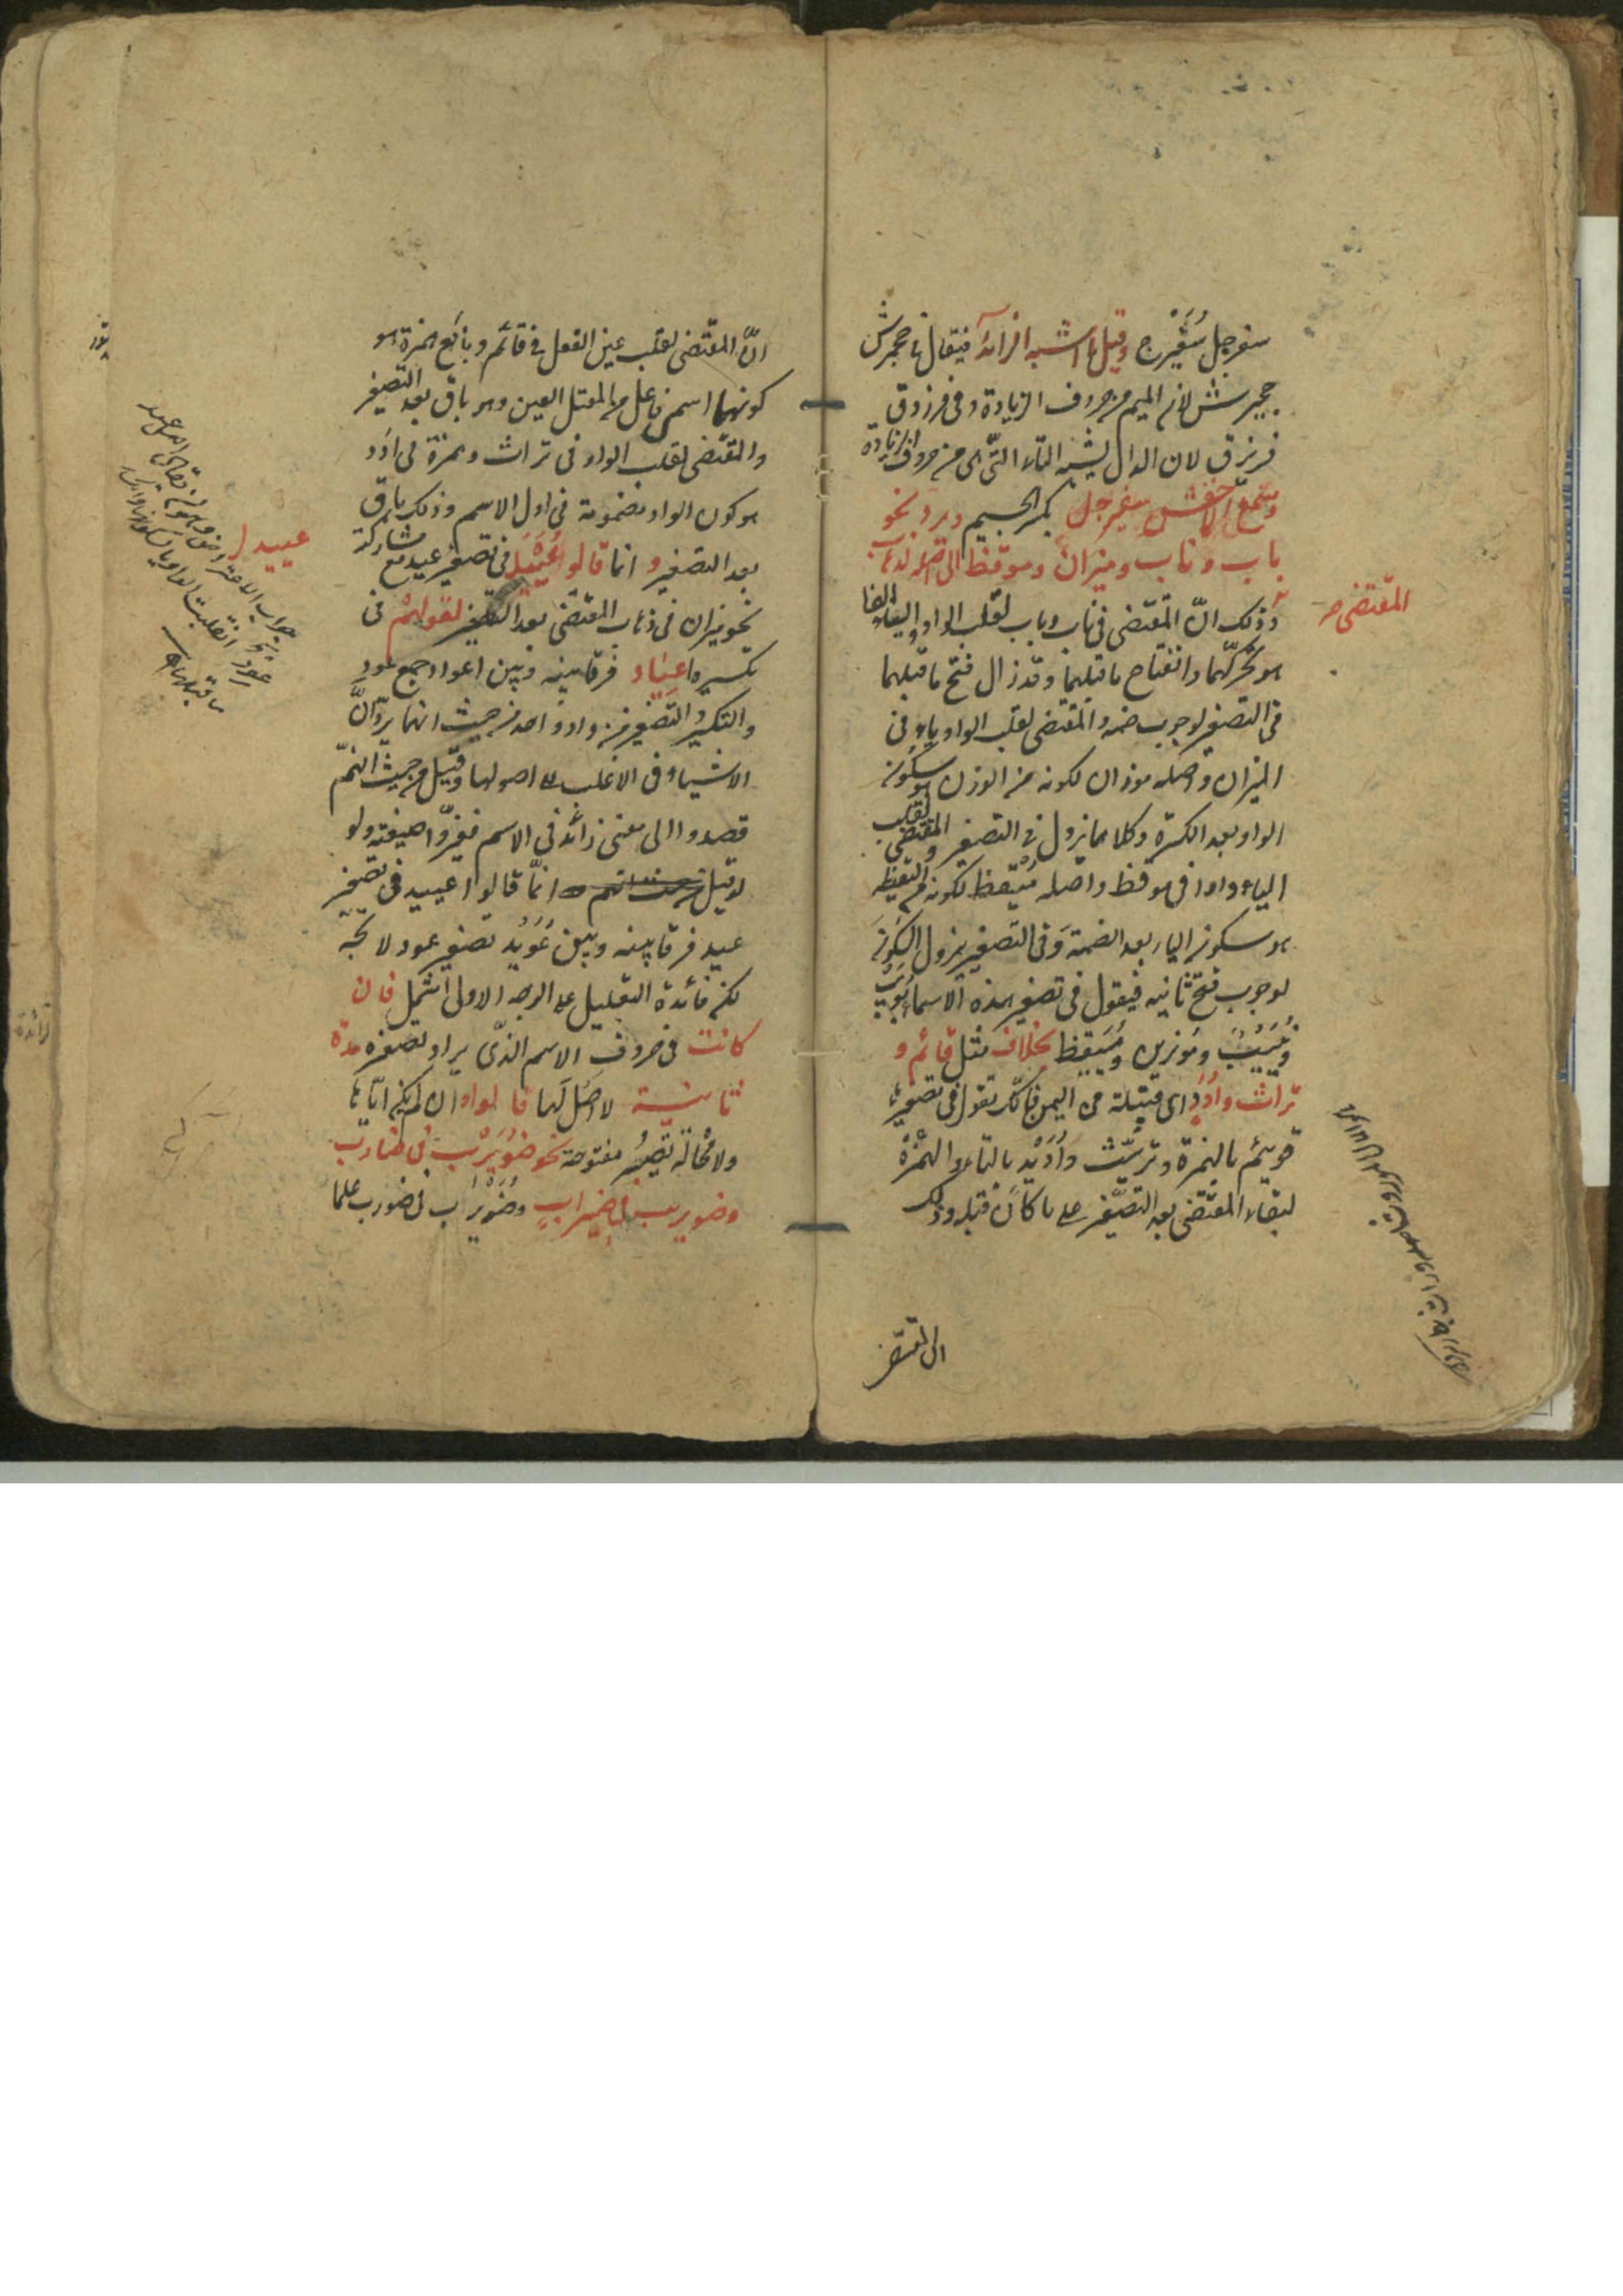 سفرجل سُفَيْرج وقيل ما اشبه الزائد فيقال في جحمرش
جحيرش لان الميم من حروف الزيادة وفي فرزدق
فريزق لان الدال يشبه التاء التي هي من حروف الزيادة
وسمع الاخفش سفيرجل بكسر الجيم ويرد نحو
باب وناب وميزان وموقظ الى اصله لذهاب
المقتضى
وذلك انّ المقتضى في ناب وباب لقلب الواو والياء الفا
هو تحركهما وانفتاح ما قبلهما وقد زال فتح ما قبلهما
في التصغير لوجوب ضمه والمقتضى لقلب الواو ياء في
الميزان واصله موزان لكونه من الوزن هو سكون
الواو بعد الكسرة وكلاهما يزول في التصغير والمقتضى لقلب
الياء واوا في موقظ واصله مُيْقظ لكونه من اليقظه
هو سكون الياء بعد الضمة وفي التصغير يزول السكون
لوجوب فتح ثانيه فيقول في تصغير هذه الاسماء بُويب
ونُيَيْب ومُوَيزين ومُيَيقظ بخلاف مثل قائم و
تراث واُدَد اي قبيلة من اليمن فانّك تقول في تصغيرها
قويئم بالهمزة وتريّث واُدَيْد بالتاء والهمزة
لبقاء المقتضى بعد التصغير على ما كان قبله وذلك
ان المقتضى
انّ المقتضى لقلب عين الفعل في قائم وبائع همزة هو
كونهما اسم فاعل من المعتل العين وهو باق بعد التصغير
والمقتضى لقلب الواو في تراث وهمزة في اُدَد
هو كون الواو مضمومة في اول الاسم وذلك باق
بعد التصغير وانما قالوا عُيَيْد في تصغير عيد مع مشاركته
عييد
نحو ميزان في ذهاب المقتضى بعد التصغير لقولهم في
تكسيره اعياد فرقا بينه وبين اعواد جمع عود
والتكسير والتصغير من واد واحد من حيث انهما يردّان
الاشياء في الاغلب الى اصولها وقيل من حيث انهم
قصدوا الى معنى زائد في الاسم فغيّروا صيغته ولو
لو قيل انّما قالوا عييد في تصغير
عيد فرقا بينه وبين عُوَيْد تصغير عود لاتجه
لكن فائدة التعليل على الوجه الاول اشمل فان
كانت في حروف الاسم الذي يراد تصغيره مدة
ثانية لا اصل لها فالواو ان لم يكن ايّاها
ولا محالة تصير مفتوحة نحو ضُوَيْرب في ضارب
وضويريب في ضيراب وضُوَيْراب في ضورب علما
زائدة